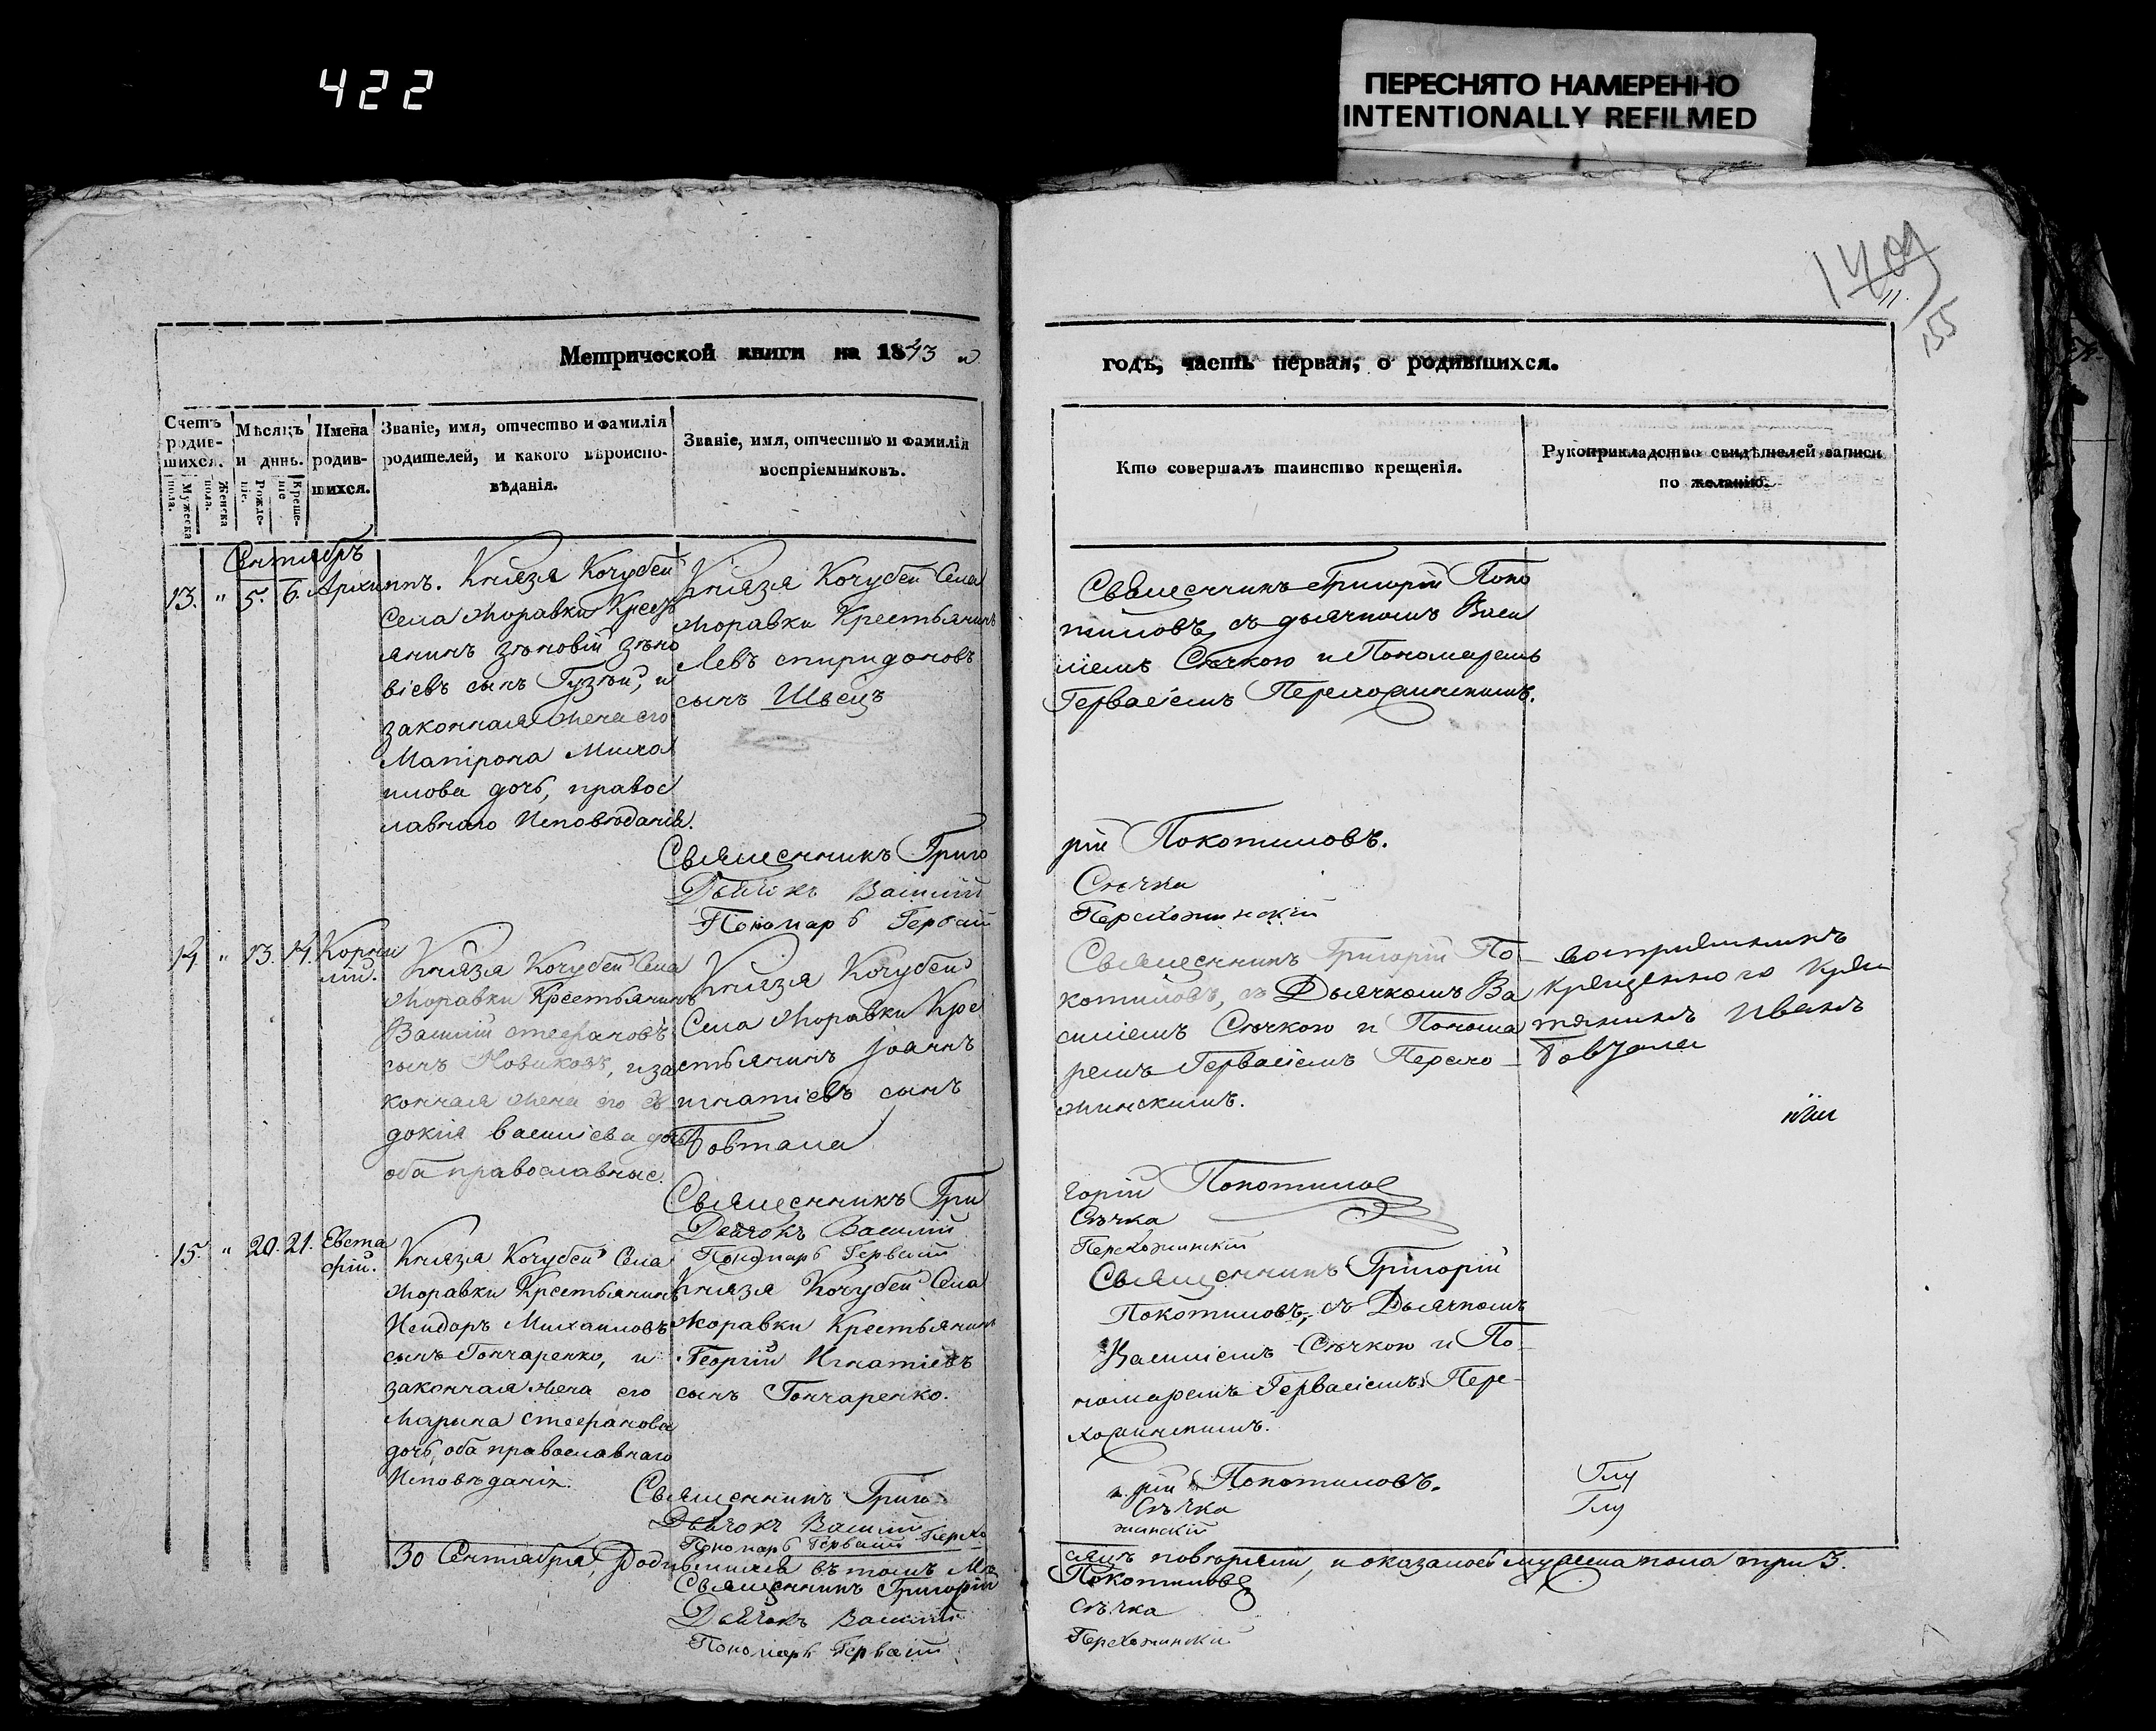 422
ПЕРЕСНЯТО НАМЕРЕННО
INTENTIONALLY REFILMED
155
Метрической книги на 1843 й
годъ, часть первая, о родившихся.
Счетъ родив-шихся.
Мужеска пола.
Женска пола.
Мѣсяцъ и день.
Рожде-ніе.
Креще-ніе
Имена родив-шихся.
Званіе, имя, отчество и фамилія
родителей, и какого вѣроиспо-
вѣданія.
Званіе, имя, отчество и фамилія
воспріемниковъ.
Кто совершалъ таинство крещенія.
Рукоприкладство свидѣтелей записи
по желанію.
Сентябръ
13. " 5. 6. Архиппъ.
Князя Кочубей
Села Моравки Кресть
янинъ Зѣновій Зѣно
віевъ сынъ Гузѣй, и
законная жена его
Матрона Миха
илова дочь, правос
лавнаго Исповѣданія.
Князя Кочубей Села
Моравки Крестьянинъ
Левъ спиридоновъ
сынъ Швецъ
Священникъ Григорій Поко
тиловъ, съ дьячкомъ Васи
ліемъ Сѣчкою и Пономаремъ
Гервасіемъ Перехожинскимъ.
Священникъ Григо
рій Покотиловъ.
Дьячокъ Василій
Сѣчка
Пономарь Гервасій
Перехожинскій
14. " 13. 14. Корни
лій.
Князя Кочубей Села
Моравки Крестьянинъ
Василій стефановъ
сынъ Новиковъ, и за
конная жена его Ев
докія василіева дочь
оба православные.
Князя Кочубей
Села Моравки Кре
стьянинъ Іоаннъ
игнатіевъ сынъ
Товтала
Священникъ Григорій По-
котиловъ, съ Дьячкомъ Ва
силіемъ Сѣчкою и Понома
ремъ Гервасіемъ Перехо-
жинскимъ.
восприемникъ
крещенного кре
тянинъ Иванъ
Священникъ Гри
горій Покотилов
Дьячокъ Василій
Сѣчка
Пономарь Гервасій
Перехожинскій
15. " 20. 21. Евста
фій.
Князя Кочубей Села
Моравки Крестьянинъ
Исидоръ Михаиловъ
сынъ Гончаренко, и
законная жена его
Марина стефанова
дочь, оба православнаго
Исповѣданія.
Князя Кочубей Села
Моравки Крестьянинъ
Георгій Игнатіевъ
сынъ Гончаренко.
Священникъ Григорій
Покотиловъ, съ Дьячкомъ
Василіемъ Сѣчкою и По-
номаремъ Гервасіемъ Пере-
хожинскимъ.
Священникъ Григо
рій Покотиловъ.
Дьячокъ Василій
Сѣчка
Пономарь Гервасій Перехо
жинскій
30 Сентября, Родившихся въ томъ Мѣ
сяцѣ повѣряли, и оказалось мужеска пола три 3.
Священникъ Григорій
Покотилов
Дьячокъ Василій
Сѣчка
Пономарь Гервасій
Перехожинскій